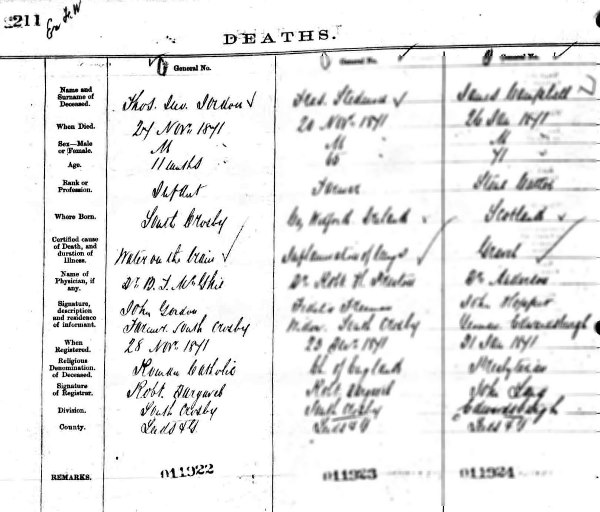 211
DEATHS.
General No. General No. General No.
Name and Surname of Deceased. Thos. Jno. Gordon Thos. James Campbell
When Died. 27 Nov. 1871 20 Nov. 1871 26 Jan 1871
Sex—Male or Female. M M M
Age. 11 months 71
Rank or Profession. Infant Farmer Stone Cutter
Where Born. South Crosby Co. Wexford Ireland Scotland
Certified cause of Death, and duration of Illness. Water on the brain Inflammation of lungs Gravel
Name of Physician, if any. Dr. B. F. Dr. Robt. H. Preston Dr.
Signature, description and residence of informant. John Gordon John
Farmer South Crosby South Crosby Yeoman Edwardsburgh
When Registered. 28 Nov. 1871 1871 31 Jan 1871
Religious Denomination of Deceased. Roman Catholic Ch of England Presbyterian
Signature of Registrar. Robt. Robt. John
Division. South Crosby South Crosby Edwardsburgh
County. Leeds & G Leeds & G Leeds & G
REMARKS. 011922 011923 011924